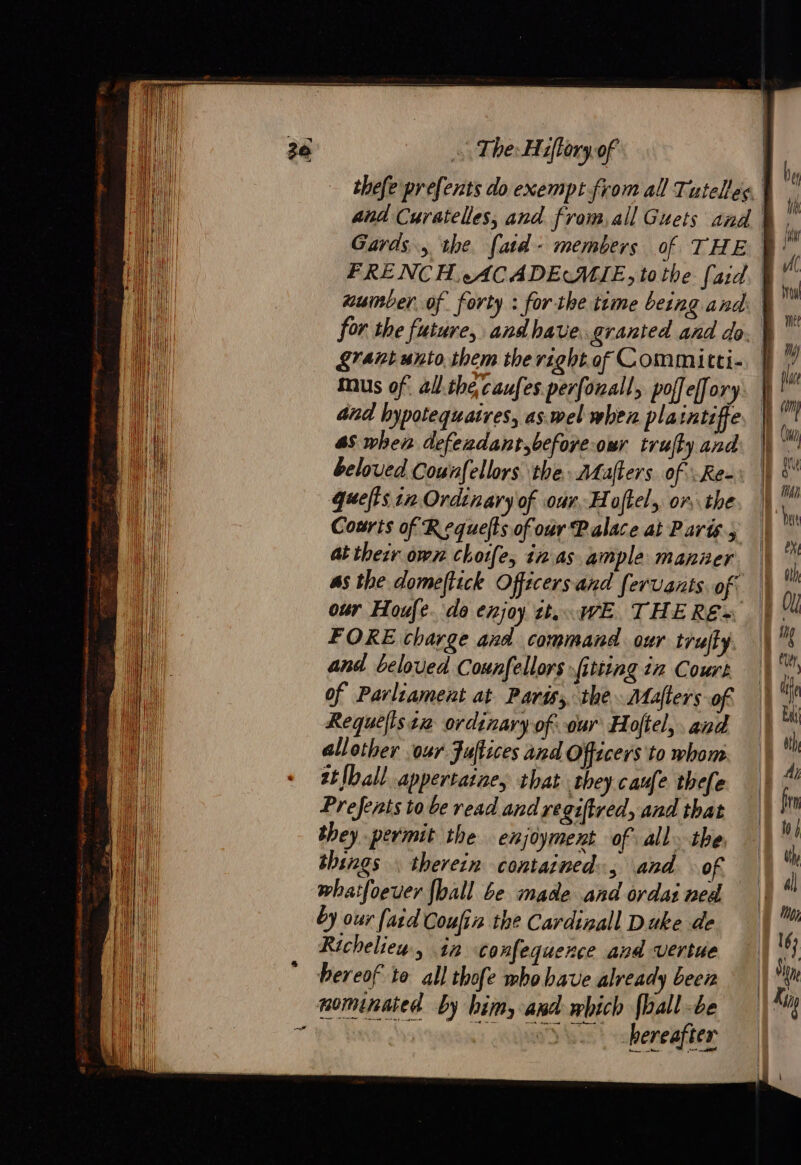 30 The Hiſtory of
theſe preſents do exempt from all Tutelles
and Curatelles, and from all Guets and
Gards, the ſaid members of THE
FRENCH ACADEMIE, to the ſaid
number of forty : for the time being and
for the future, and have granted and do
grant unto them the right of Committi-
mus of all the cauſes perſonall, poſſeſſory
and hypotequaires, as wel when plaintiffe
as when defendant, before our truſty and
beloved Counſellors the Maſters of Re-
queſts in Ordinary of our Hoſtel, or the
Courts of Requeſts of our Palace at Paris,
at their own choiſe, in as ample manner
as the domeſtick Officers and ſervants of
our Houſe do enjoy it. WE THERE-
FORE charge and command our truſty
and beloved Counſellors ſitting in Court
of Parliament at Paris, the Maſters of
Requeſts in ordinary of our Hoſtel, and
all other our Juſtices and Officers to whom
it ſhall appertaine, that they cauſe theſe
Preſents to be read and regiſtred, and that
they permit the enjoyment of all the
things therein contained, and of
whatſoever ſhall be made and ordained
by our ſaid Couſin the Cardinall Duke de
Richelieu, in conſequence and vertue
hereof to all thoſe who have already been
nominated by him, and which ſhall be
hereafter